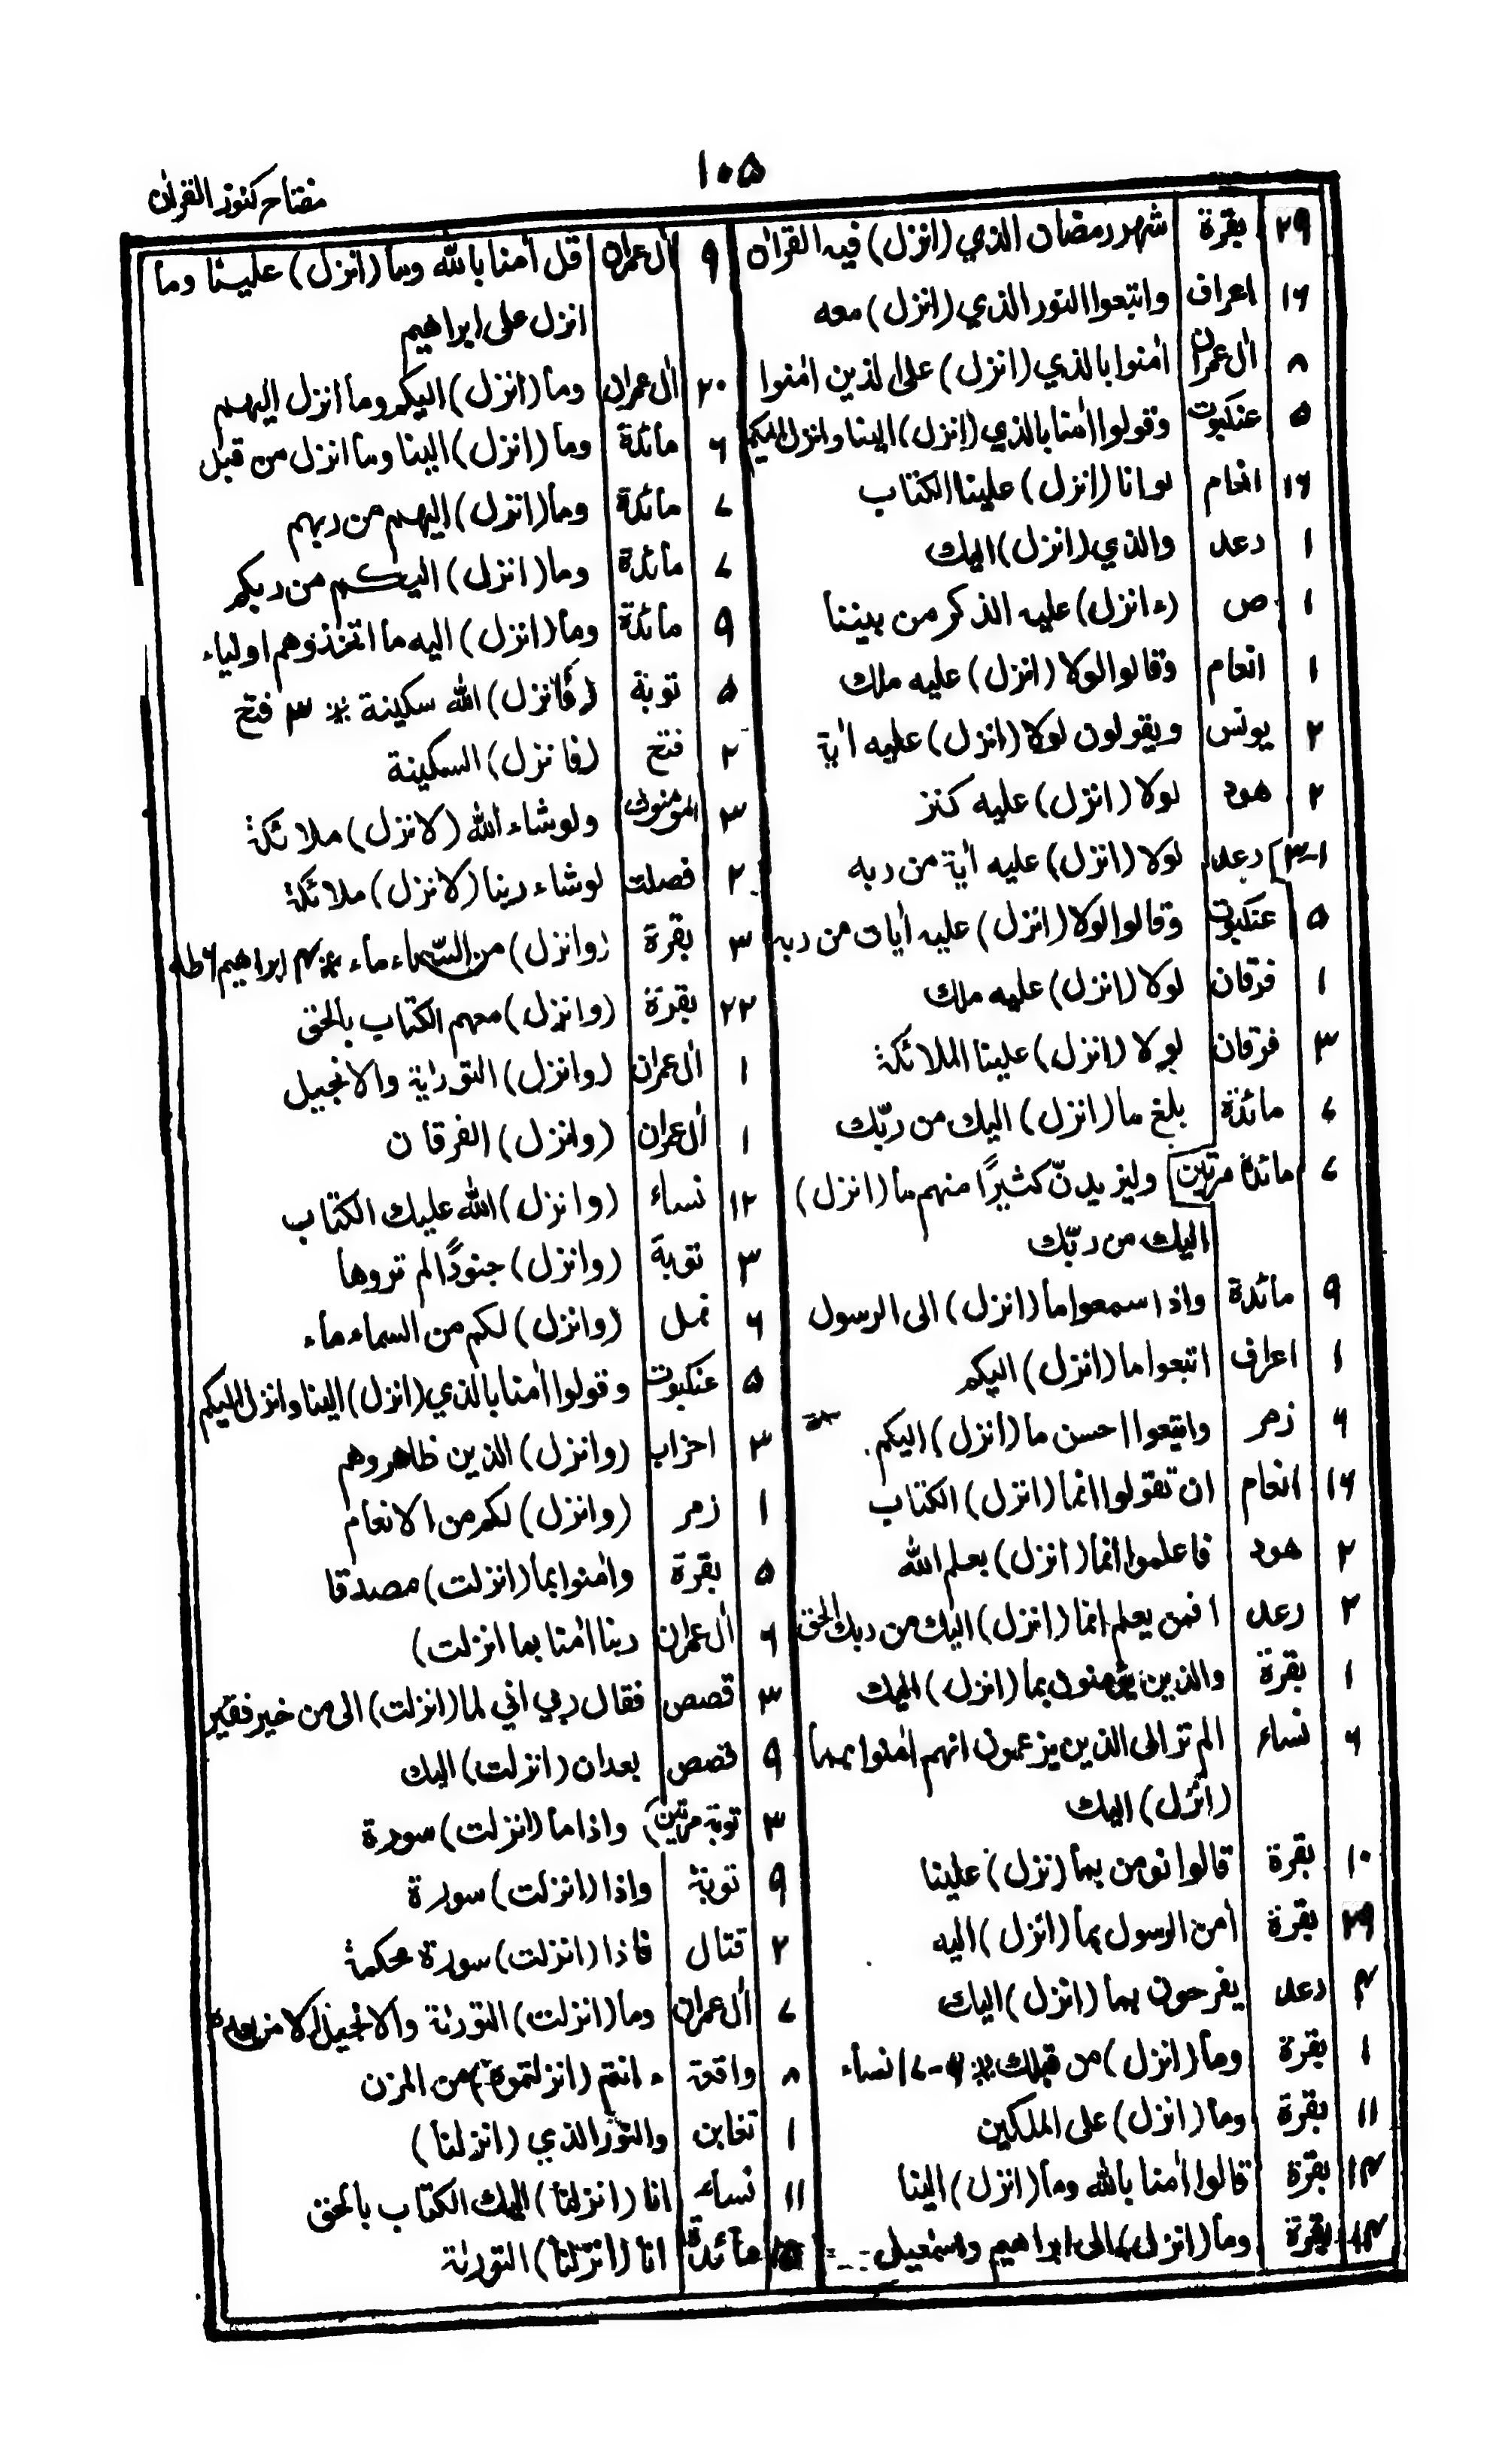 ۱۰۵
مفتاح كنوز القرآن
۲۹ بقرة شهر رمضان الذي (انزل) فيه القرآن
۱۶ اعراف واتبعوا النور الذي (انزل) معه
۸ آل عمران آمنوا بالذي (انزل) على الذين آمنوا
۵ عنكبوت وقولوا آمنا بالذي (انزل) الينا وانزل اليكم
۱۶ انعام لو انا (انزل) علينا الكتاب
۱ رعد والذي (انزل) اليك
۱ ص (ء انزل) عليه الذكر من بيننا
۱ انعام وقالوا لولا (انزل) عليه ملك
۲ يونس ويقولون لولا (انزل) عليه آية
۲ هود لولا (انزل) عليه كنز
۱-۳ رعد لولا (انزل) عليه آية من ربه
۵ عنكبوت وقالوا لولا (انزل) عليه آيات من ربه
۱ فرقان لولا (انزل) عليه ملك
۳ فرقان لولا (انزل) علينا الملائكة
مائدة بلغ ما (انزل) اليك من ربّك
۷ مائدة مرتين وليزيدنّ كثيرًا منهم ما (انزل)
اليك من ربّك
۹ مائدة واذا سمعوا ما (انزل) الى الرسول
۱ اعراف اتبعوا ما (انزل) اليكم
۶ زمر واتبعوا احسن ما (انزل) اليكم
۱۶ انعام ان تقولوا انما (انزل) الكتاب
۲ هود فاعلموا انما (انزل) بعلم الله
۲ رعد افمن يعلم انما (انزل) اليك من ربك الحق
۱ بقرة والذين يؤمنون بما (انزل) اليك
۶ نساء الم تر الى الذين يزعمون انهم آمنوا بما
(انزل) اليك
۱۰ بقرة قالوا نؤمن بما (نزل) علينا
بقرة آمن الرسول بما (انزل) اليه
۴ رعد يفرحون بما (انزل) اليك
۱ بقرة وما (انزل) من قبلك نساء
۱۱ بقرة وما (انزل) على الملكين
۱۴ بقرة قالوا آمنا بالله وما (انزل) الينا
۱۴ بقرة وما (انزل) الى ابراهيم واسمعيل
۹ آل عمران قل آمنا بالله وما (انزل) علينا وما
انزل على ابراهيم
۲۰ آل عمران وما (انزل) اليكم وما انزل اليهم
۶ مائدة وما (انزل) الينا وما انزل من قبل
۷ مائدة وما (انزل) اليهم من ربهم
۷ مائدة وما (انزل) اليكم من ربكم
۹ مائدة وما (انزل) اليه ما اتخذوهم اولياء
۵ توبة (فأنزل) الله سكينة * ۳ فتح
۲ فتح (فانزل) السكينة
۳ المؤمنون ولو شاء الله (لانزل) ملائكة
۲ فصلت لو شاء ربنا (لانزل) ملائكة
۳ بقرة (وانزل) من السّماء ماء ابراهيم طه
۲۲ بقرة (وانزل) معهم الكتاب بالحق
۱ آل عمران (وانزل) التوراية والانجيل
۱ آل عمران (وانزل) الفرقان
۱۲ نساء (وانزل) الله عليك الكتاب
۳ توبة (وانزل) جنودًا لم تروها
۶ نمل (وانزل) لكم من السماء ماء
۵ عنكبوت وقولوا آمنا بالذي (انزل) الينا وانزل اليكم
۳ احزاب (وانزل) الذين ظاهروهم
۱ زمر (وانزل) لكم من الانعام
۵ بقرة وآمنوا بما (انزلت) مصدقا
۶ آل عمران ربنا آمنا بما انزلت)
۳ قصص فقال ربي اني لما (انزلت) الى من خير فقير
۹ قصص بعد ان (انزلت) اليك
۳ توبة مرتين) واذا ما (انزلت) سورة
۹ توبة واذا (انزلت) سورة
۲ قتال فاذا (انزلت) سورة محكمة
۷ آل عمران وما (انزلت) التورىة والانجيل الا من بعده
۸ واقعة ء انتم (انزلتموه) من المزن
۱ تغابن والنور الذي (انزلنا)
۱۱ نساء انا (انزلنا) اليك الكتاب بالحق
مائدة انا (انزلنا) التورىة